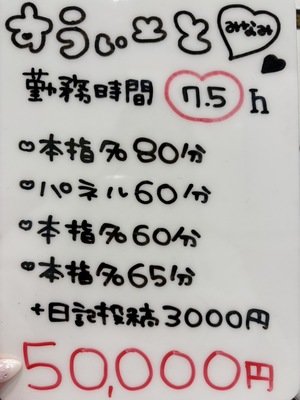 おうぃさと みなみ
勤務時間 7.5h
本指名80分
パネル60分
本指名60分
本指名65分
+日記投稿3000円
50,000円